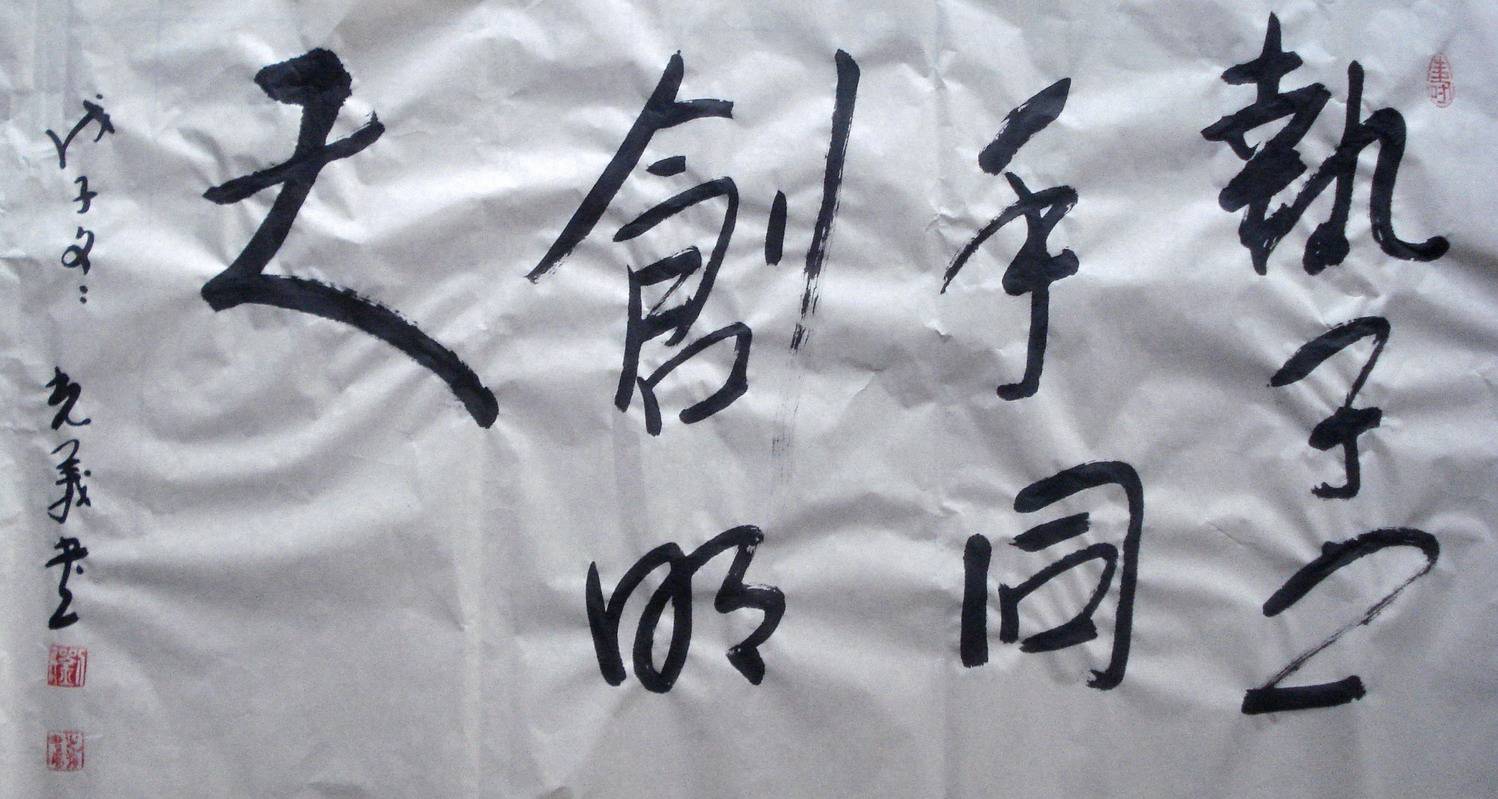 執子之
手同
創明
天
戊子夏
克義書